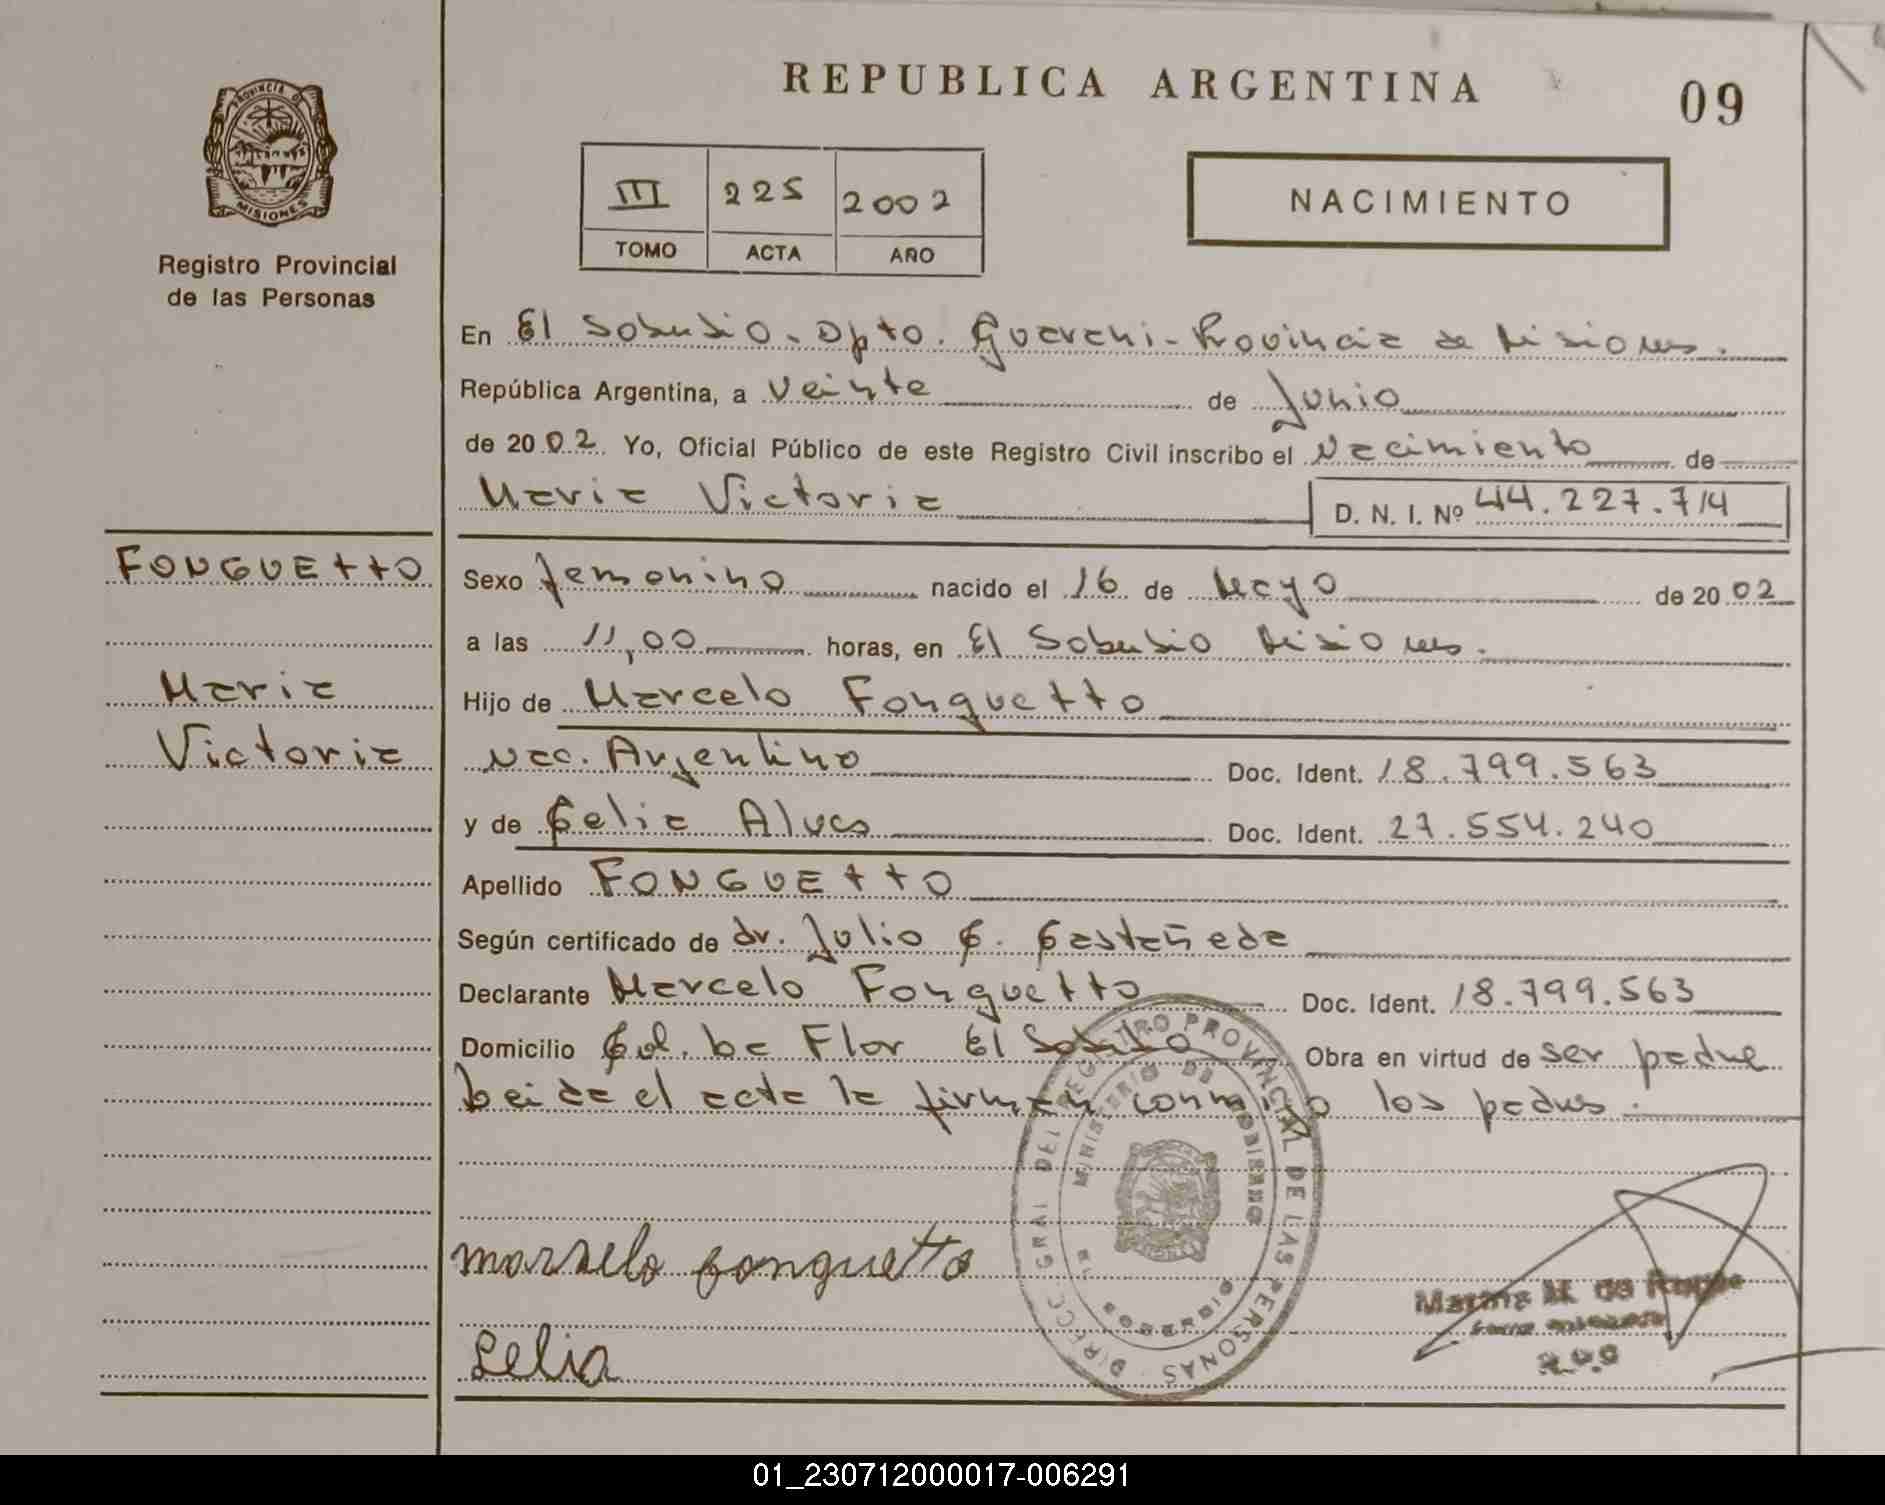 REPUBLICA ARGENTINA
09
PROVINCIA DE
MISIONES
Registro Provincial
de las Personas
III 225 2002
TOMO ACTA AÑO
NACIMIENTO
En El Soberbio - Dpto. Guarani - Provincia de Misiones.
República Argentina, a veinte de Junio
de 2002 Yo, Oficial Público de este Registro Civil inscribo el Nacimiento de
Maria Victoria D. N. I. Nº 44.227.714
FONGUETTO
Maria
Victoria
Sexo femenino nacido el 16 de Mayo de 2002
a las 11,00 horas, en El Soberbio Misiones.
Hijo de Marcelo Fonguetto
Nac. Argentino Doc. Ident. 18.799.563
y de Celia Alves Doc. Ident. 27.554.240
Apellido FONGUETTO
Según certificado de dr. Julio C. Castañeda
Declarante Marcelo Fonguetto Doc. Ident. 18.799.563
Domicilio Col. La Flor El Soberbio Obra en virtud de ser padre
Leida el acta la firman conmigo los padres.
DIRECC. GRAL. DEL REGISTRO PROVINCIAL DE LAS PERSONAS
MINISTERIO DE GOBIERNO
EL SOBERBIO
marselo fonguetto
Marina M. de
Lelia
01_230712000017-006291